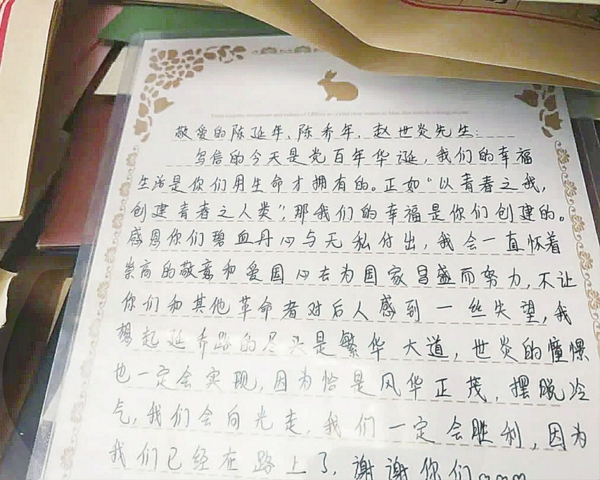 敬爱的陈延年、陈乔年、赵世炎先生:
写信的今天是党百年华诞，我们的幸福
生活是你们用生命才拥有的。正如“以青春之我，
创建青春之人类”，那我们的幸福是你们创建的。
感恩你们碧血丹心与无私付出，我会一直怀着
崇高的敬意和爱国心去为国家昌盛而努力，不让
你们和其他革命者对后人感到一丝失望，我
想起延乔路的尽头是繁华大道，世炎的憧憬
也一定会实现，因为恰是风华正茂，摆脱冷
气，我们会向光走，我们一定会胜利，因为
我们已经在路上了，谢谢你们